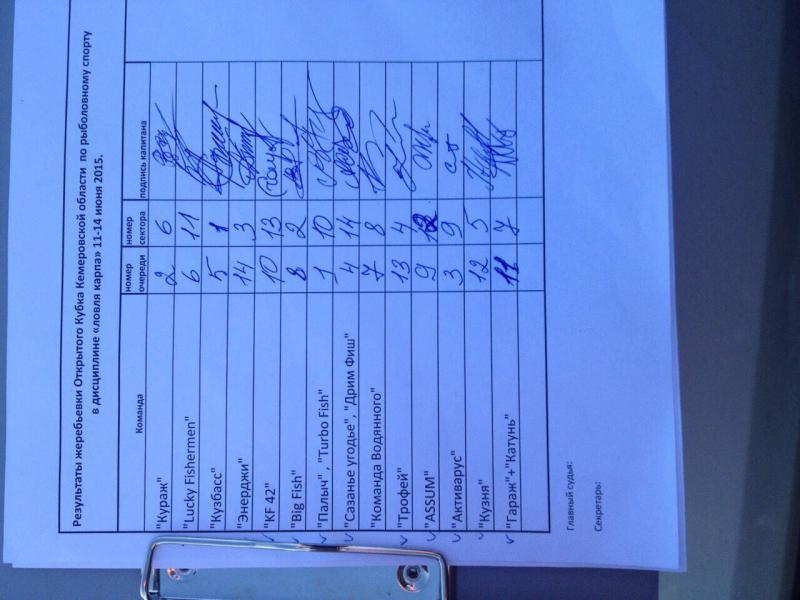 Результаты жеребьевки Открытого Кубка Кемеровской области по рыболовному спорту
в дисциплине «ловля карпа» 11-14 июня 2015.
Команда номер очереди номер сектора подпись капитана
"Кураж" 2 6
"Lucky Fishermen" 6 11
"Кузбасс" 5 1
"Энерджи" 14 3
"KF 42" 10 13
"Big Fish" 8 2
"Палыч" , "Turbo Fish" 1 10
"Сазанье угодье", "Дрим Фиш" 4 14
"Команда Водянного" 7 8
"Трофей" 13 4
"ASSUM" 9 12
"Активарус" 3 9
"Кузня" 12 5
"Гараж"+"Катунь" 11 7
Главный судья:
Секретарь: